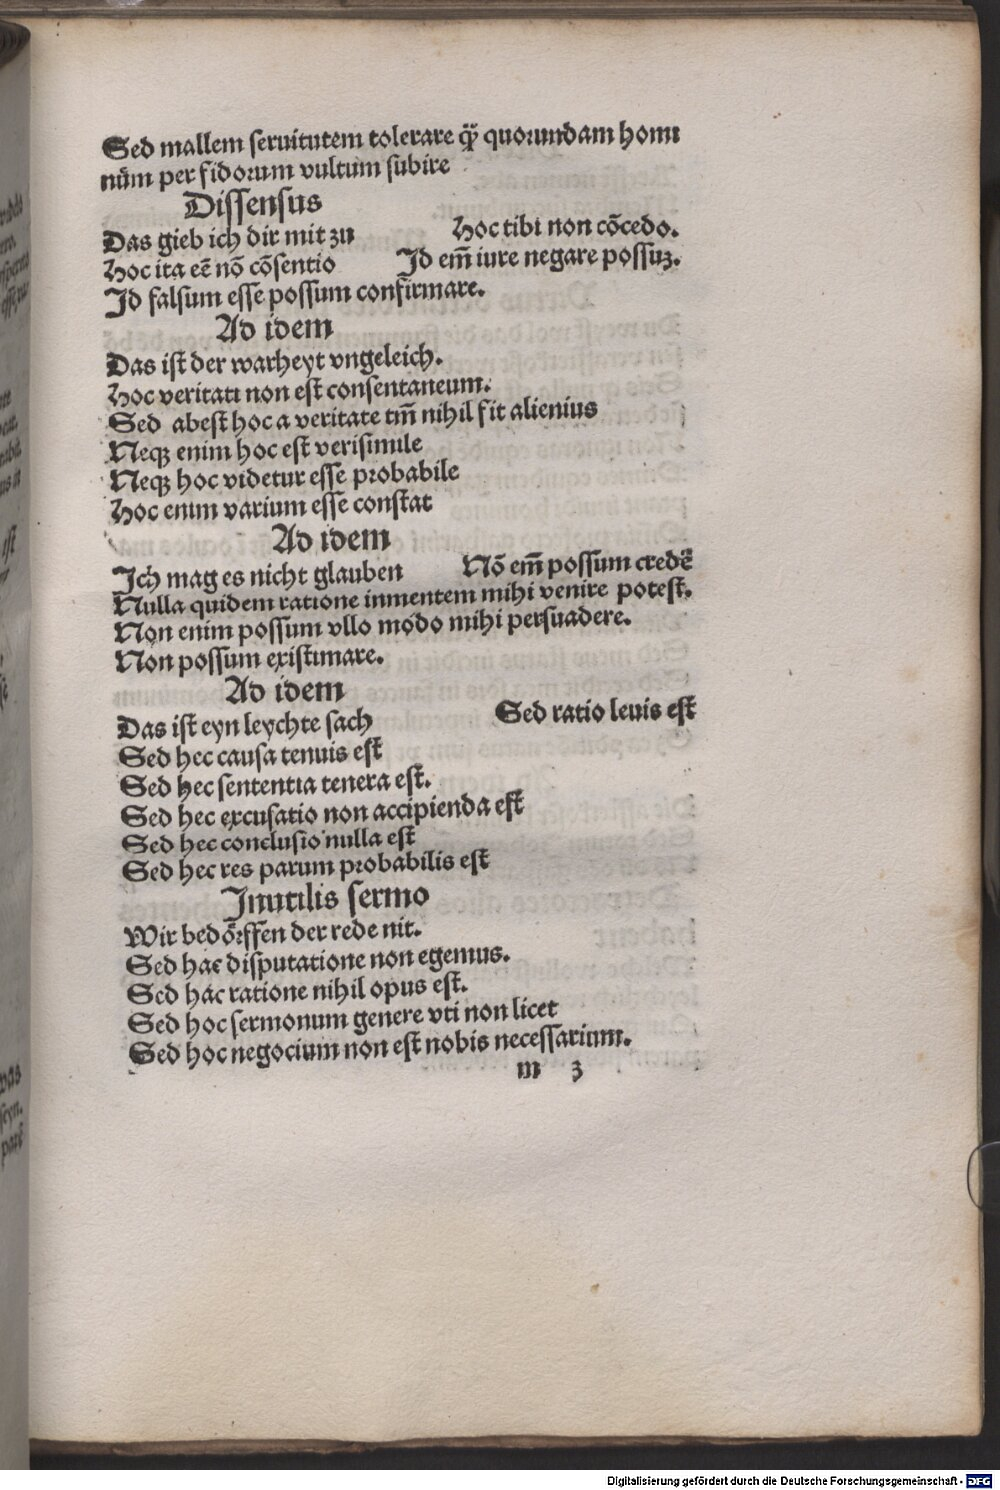 Sed mallem seruitutem tolerare q̄ꝫ quorumdam homi
nūm perfidorum vultum subire
Dissensus
Das gieb ich dir mit zu Hoc tibi non cōcedo.
Hoc ita eē nō cōsentio Id em̄ iure negare possuꝫ.
Id falsum esse possum confirmare.
Ad idem
Das ist der warheyt vngeleich.
Hoc veritati non est consentaneum.
Sed abest hoc a veritate tm̄ nihil fit alienius
Neqꝫ enim hoc est verisimile
Neqꝫ hoc videtur esse probabile
Hoc enim varium esse constat
Ad idem
Ich mag es nicht glauben Nō em̄ possum credē
Nulla quidem ratione inmentem mihi venire potest.
Non enim possum vllo modo mihi persuadere.
Non possum existimare.
Ad idem
Das ist eyn leychte sach Sed ratio leuis est
Sed hec causa tenuis est
Sed hec sententia tenera est.
Sed hec excusatio non accipienda est
Sed hec conclusio nulla est
Sed hec res parum probabilis est
Inutilis sermo
Wir bedörffen der rede nit.
Sed hac disputatione non egemus.
Sed hac ratione nihil opus est.
Sed hoc sermonum genere vti non licet
Sed hoc negocium non est nobis necessarium.
m 3
Digitalisierung gefördert durch die Deutsche Forschungsgemeinschaft - DFG